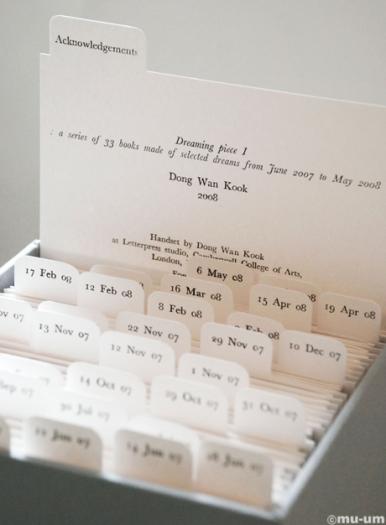 Acknowledgements
Dreaming piece I
: a series of 33 books made of selected dreams from June 2007 to May 2008
Dong Wan Kook
2008
Handset by Dong Wan Kook
at Letterpress studio, College of Arts,
London,
6 May 08
17 Feb 08
12 Feb 08
16 Mar 08
15 Apr 08
19 Apr 08
8 Feb 08
Feb 08
Nov 07
13 Nov 07
22 Nov 07
29 Nov 07
10 Dec 07
12 Nov 07
1 Nov 07
14 Oct 07
29 Oct 07
31 Oct 07
Sep 07
30 Jul 07
Jun 07
14 Jun 07
28 Jun 07
©mu-um